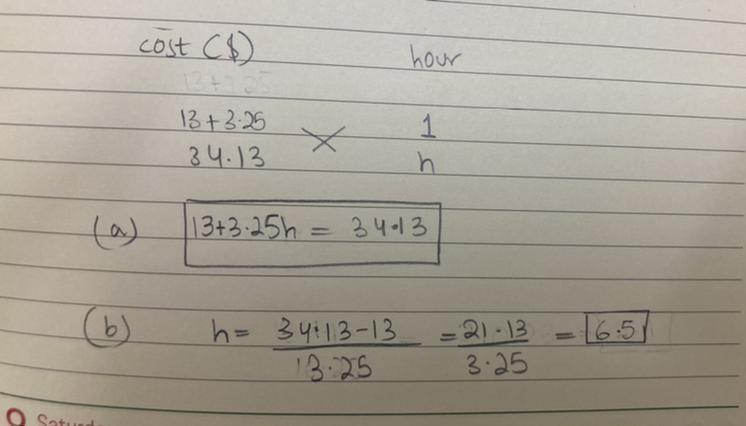 cost ($) hour
13+3.25
13+3.25 1
34.13 h
(a) 13+3.25h = 34.13
(b) h= 34.13-13 / 3.25 = 21.13 / 3.25 = 6.5